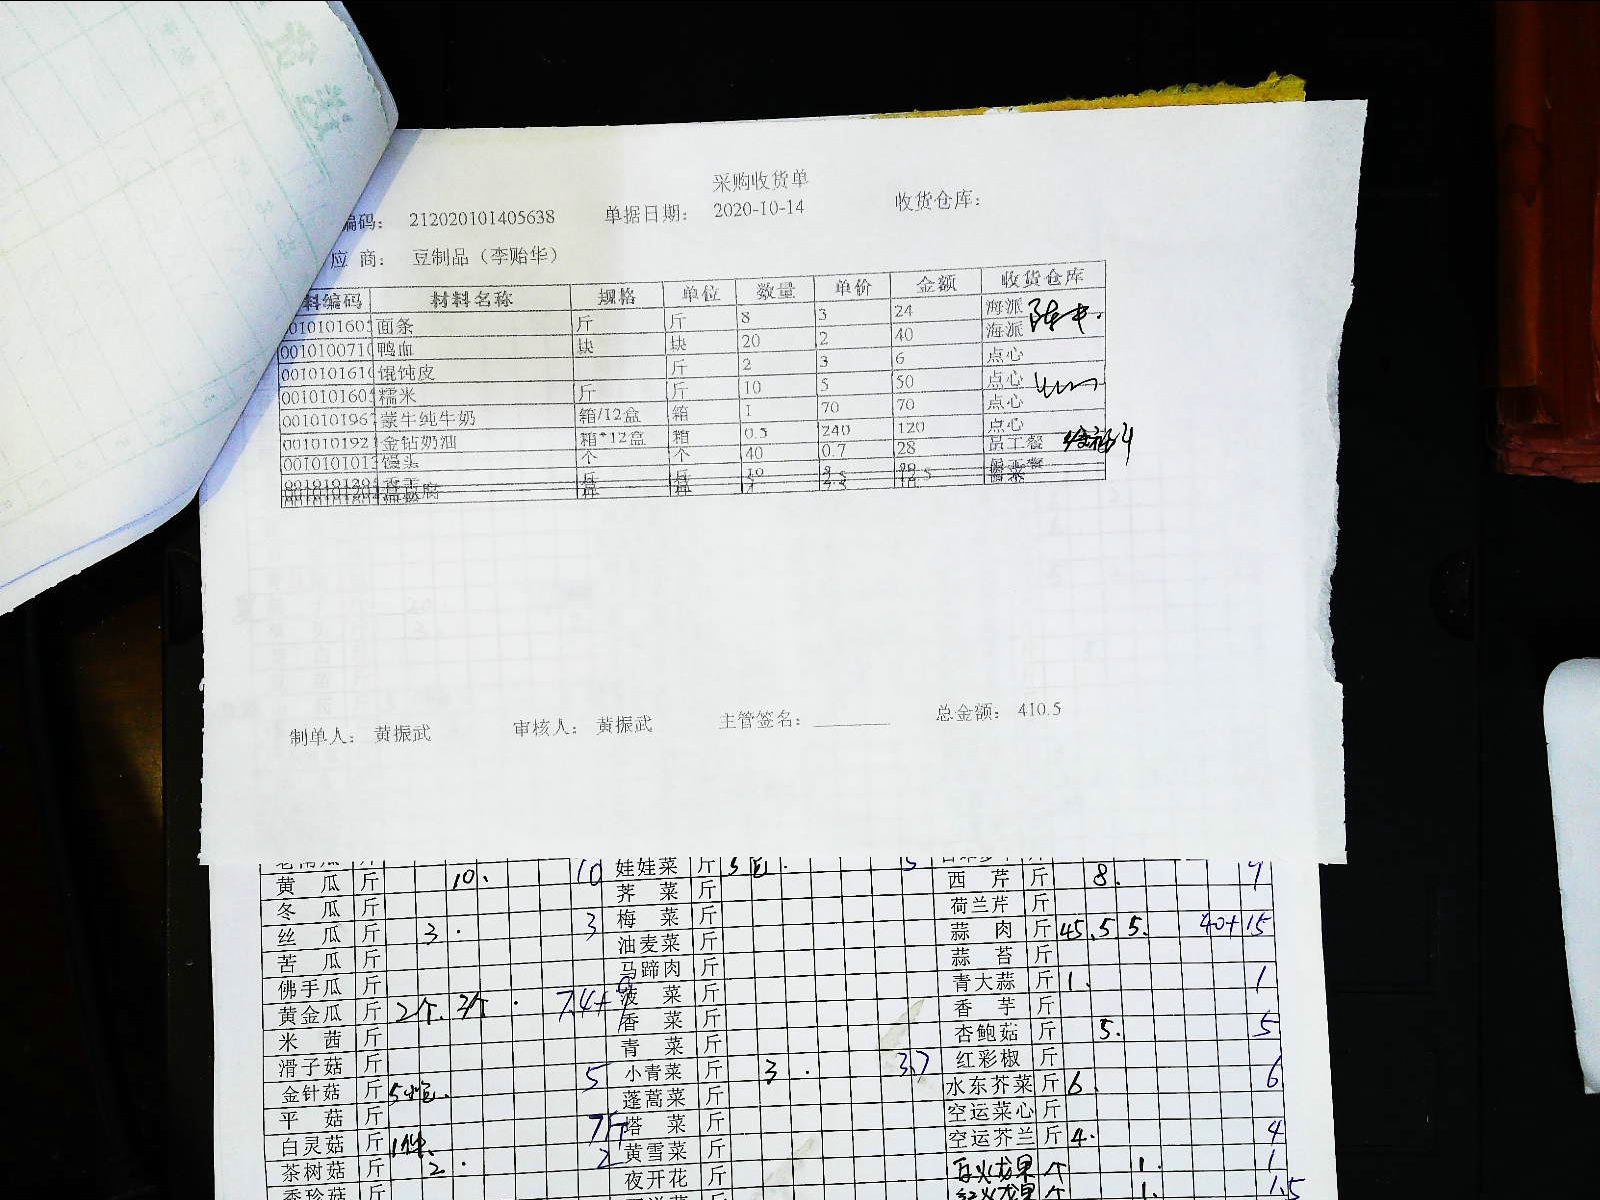 采购收货单
编码： 212020101405638 单据日期： 2020-10-14 收货仓库：
应 商： 豆制品（李贻华）
料编码 材料名称 规格 单位 数量 单价 金额 收货仓库
面条 斤 斤 8 3 24 海派
鸭血 块 块 20 2 40 海派
馄饨皮 斤 2 3 6 点心
糯米 斤 斤 10 5 50 点心
蒙牛纯牛奶 箱/12盒 箱 1 70 70 点心
金钻奶油 箱*12盒 箱 0.5 240 120 点心
馒头 个 个 40 0.7 28 员工餐
制单人： 黄振武 审核人： 黄振武 主管签名： 总金额： 410.5
娃娃菜 斤
黄瓜 斤 10. 10 荠菜 斤 西芹 斤 8.
冬瓜 斤 梅菜 斤 荷兰芹 斤
丝瓜 斤 3. 3 油麦菜 斤 蒜肉 斤 45.5 5. 40+15
苦瓜 斤 马蹄肉 斤 蒜苔 斤
佛手瓜 斤 菠菜 斤 青大蒜 斤 1. 1
黄金瓜 斤 2个. 3个. 7.4+ 香菜 斤 香芋 斤
米茜 斤 青菜 斤 杏鲍菇 斤 5. 5
滑子菇 斤 小青菜 斤 3. 3.7 红彩椒 斤
金针菇 斤 5 蓬蒿菜 斤 水东芥菜 斤 6. 6
平菇 斤 塔菜 斤 空运菜心 斤
白灵菇 斤 7斤 黄雪菜 斤 空运芥兰 斤 4. 4
茶树菇 斤 2. 2 夜开花 斤 白火龙果 个 1. 1
红火龙果 个 1. 1.5